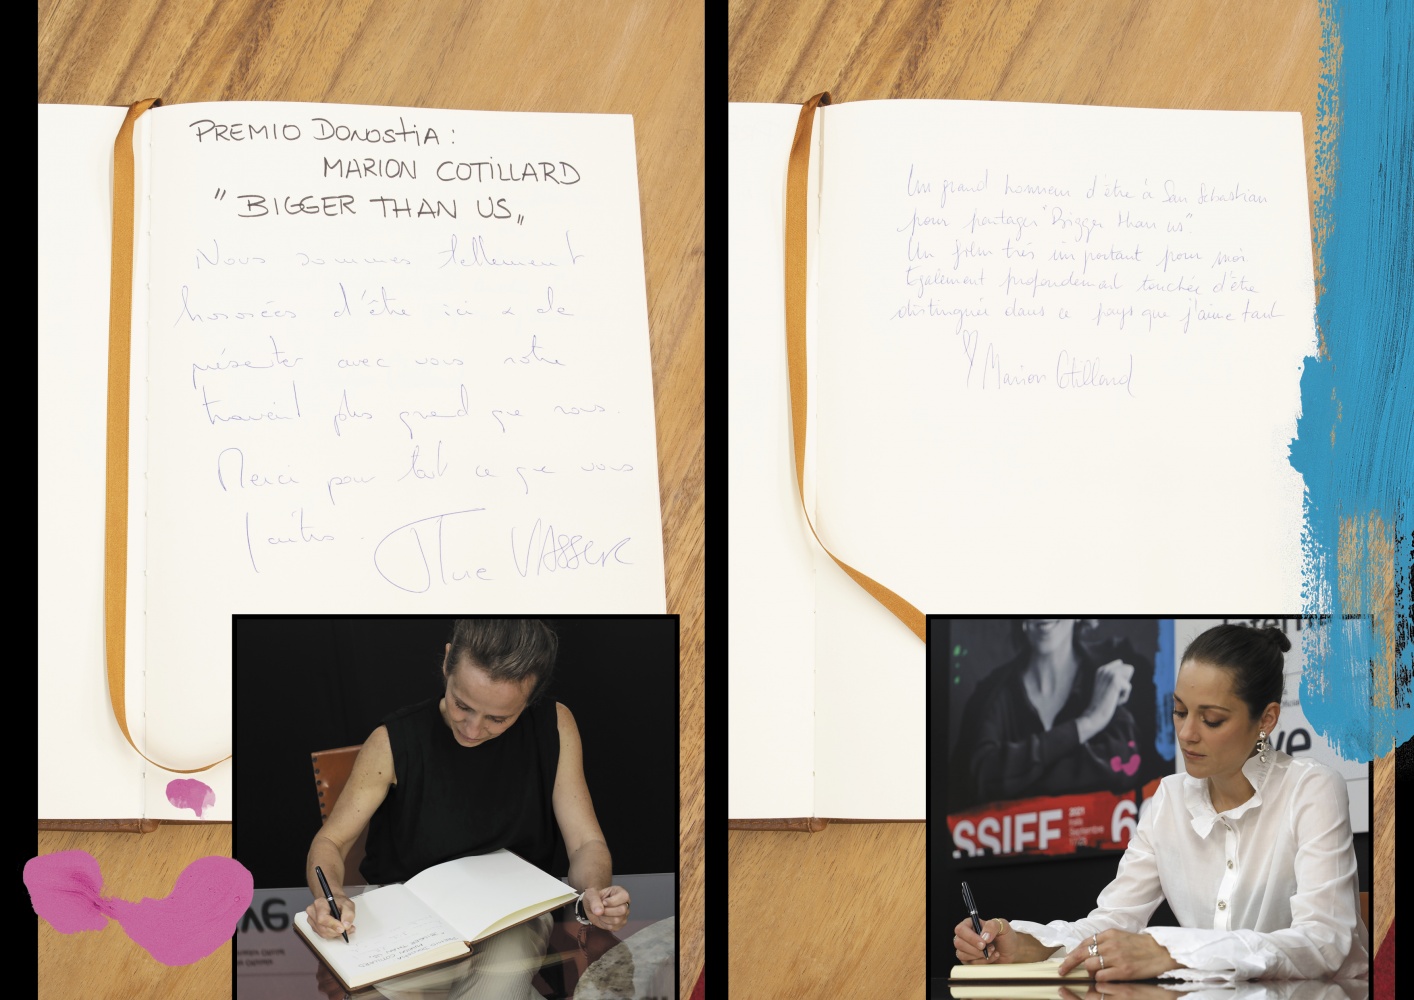 PREMIO DONOSTIA:
MARION COTILLARD
"BIGGER THAN US"
Nous sommes tellement
honorées d'être ici & de
présenter avec vous notre
travail plus grand que nous.
Merci pour tout ce que vous
faites.
VASSEUR
Un grand honneur d'être à San Sebastian
pour partager "Bigger than us".
Un film très important pour moi
Egalement profondemant touchée d'être
distinguée dans ce pays que j'aime tant
Marion Cotillard
SSIFF
2021